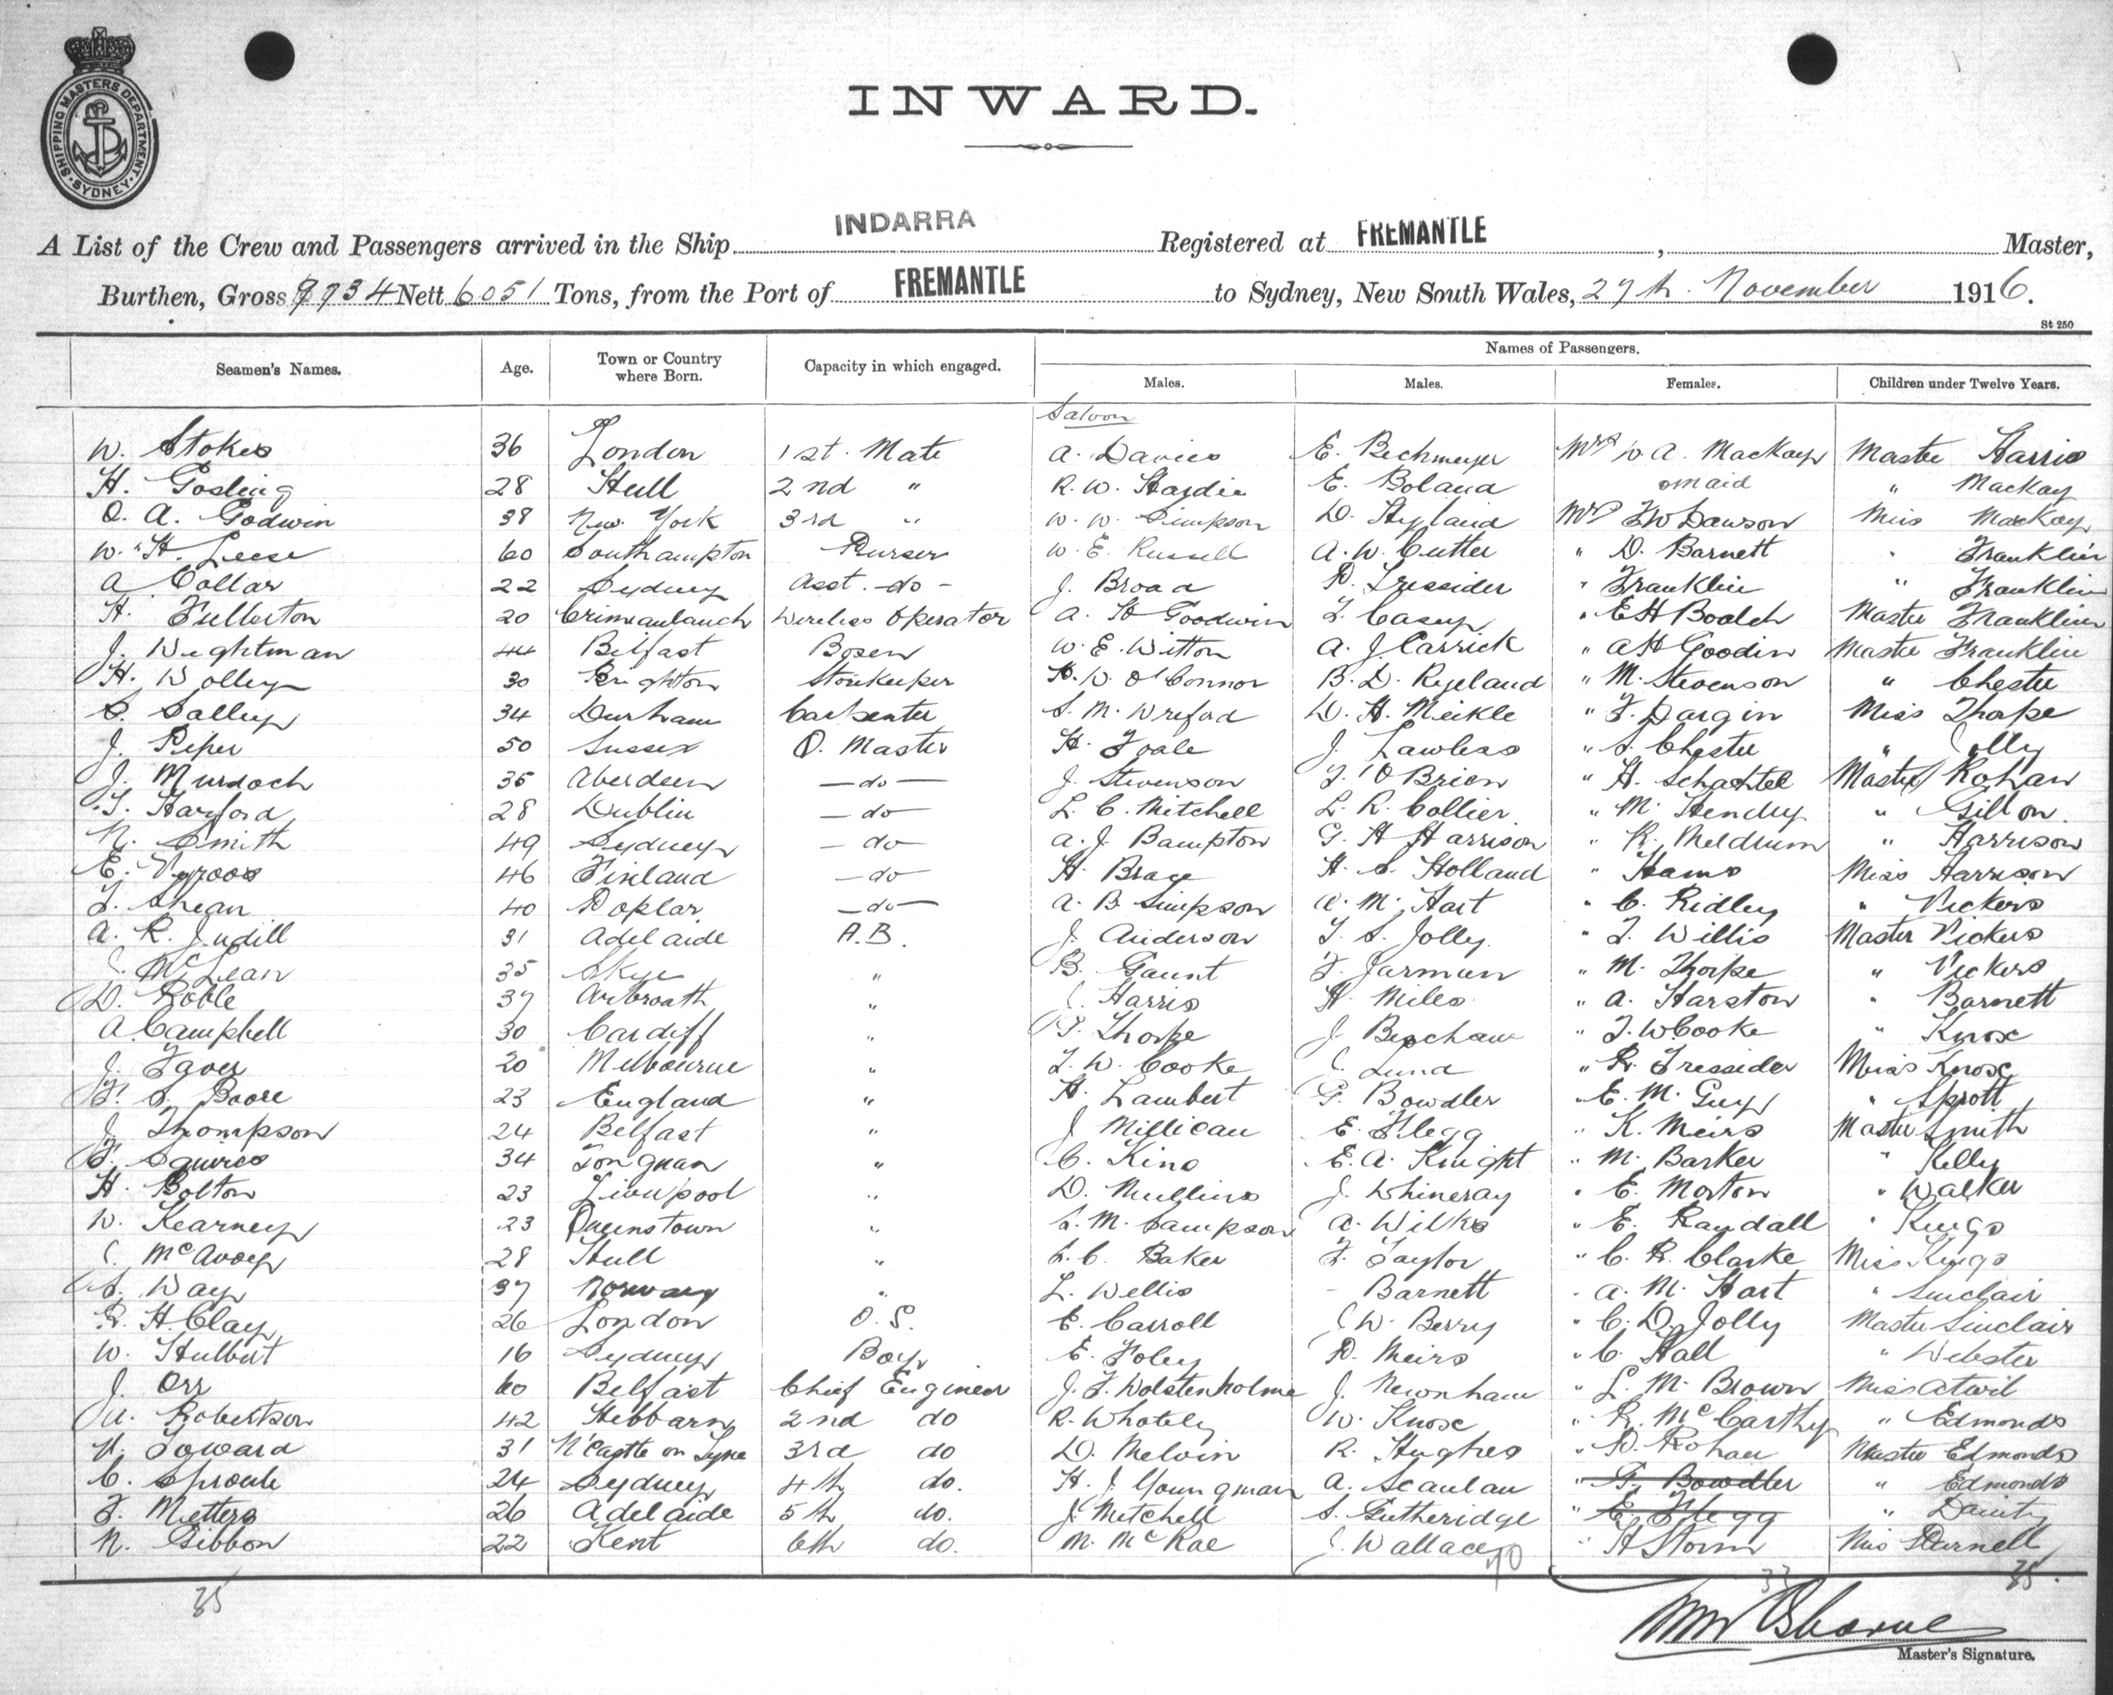 SHIPPING MASTERS DEPARTMENT
SYDNEY
INWARD.
A List of the Crew and Passengers arrived in the Ship INDARRA Registered at FREMANTLE , Master,
Burthen, Gross 9734 Nett 6051 Tons, from the Port of FREMANTLE to Sydney, New South Wales, 27th November 1916.
St 250
Names of Passengers.
Seamen's Names. Age. Town or Country where Born. Capacity in which engaged. Males. Males. Females. Children under Twelve Years.
Saloon
W. Stokes 36 London 1st. Mate A. Davies E. Bechmeyer Mrs W. A. Mackay Master Harris
H. Gosling 28 Hull 2nd " R. W. Hardie E. Boland maid " Mackay
O. A. Godwin 38 New York 3rd " W. W. Simpson D. Hyland Mrs F W Dawson Miss Mackay
W. H. Leese 60 Southampton Purser W. E. Russell A. W. Cutter " D. Barnett " Franklin
A Collar 22 Sydney Asst. -do- J. Broad P. Tressider " Franklin " Franklin
H. Fullerton 20 Wireless Operator A. H Goodwin T. Casey " E H Boalch Master Franklin
J. Wightman 44 Belfast Bosen W. E. Witton A. J. Carrick " A H Goodin Master Franklin
H. Wolley 30 Brighton Storekeeper H. W. O'Connor B. D. Ryeland " M. Stevenson " Chester
S. Salley 34 Durham Carpenter S. M. Wreford D. H. Meikle " F. Dargin Miss Thorpe
J. Piper 50 Sussex Q. Master H. Foale J. Lawless " S. Chester " Jolly
J. Murdoch 35 Aberdeen -do- J. Stevenson T. O'Brien " H. Schachtel Master Rohan
T. Harford 28 Dublin -do- L. C. Mitchell L. R. Collier " M. Hendry " Gillon
N. Smith 49 Sydney -do- A. J. Bampton G. H Harrison " R. Meldrum " Harrison
E. 46 Finland -do- H. Brage H. S. Holland " Hams Miss Harrison
T. Shean 40 Poplar -do- A. B. Simpson A. M. Hart " C. Ridley " Vickers
A. R. Judill 31 Adelaide A.B. J. Anderson T. S. Jolly " T. Willis Master Vickers
J. McLean 35 Skye " B. Gaunt F. Jarman " M. Thorpe " Vickers
D. Roble 37 Arbroath " J. Harris H. Miles " A. Harston " Barnett
A. Campbell 30 Cardiff " P. Thorpe J. Beacham " T. W. Cooke " Knox
J. Faver 20 Melbourne " T. W. Cooke J. Lund " R. Tressider Miss Knox
F. S. Boore 23 England " H. Lambert G. Bowdler " E. M. Guy " Sprott
J. Thompson 24 Belfast " J Millican E. Flegg " K. Meirs Master Smith
F. Squires 34 Tonguan " C. King E. A. Knight " M. Barker " Kelly
H. Bolton 23 Liverpool " D. Mullins J. Whineray " E. Morton " Walker
W. Kearney 23 Queenstown " L. M. Sampson A. Wilks " E. Randall " Kings
J. McAvoy 28 Hull " L. C. Baker F. Taylor " C. R. Clarke Miss Kings
S. Way 37 Norway " L. Wellis - Barnett " A. M. Hart " Sinclair
R. H. Clay 26 London O. S. E. Carroll J. W. Berry " C. D. Jolly Master Sinclair
W. Hulbert 16 Sydney Boy E. Foley P. Meirs " C. Hall " Webster
J. Orr 60 Belfast Chief Engineer J. F. Wolstenholme J. Newnham " L. M. Brown Miss Atwil
W. Robertson 42 Hebbarn 2nd do R. Whately W. Knox " R. McCarthy " Edmonds
N. Toward 31 N'Castle on Tyne 3rd do D. Melvin R. Hughes " P. Rohan Master Edmonds
C. Sproule 24 Sydney 4th do. H. J. Youngman A. Scanlan " G. Bowdler " Edmonds
F. Metters 26 Adelaide 5th do. J. Mitchell S. Gutheridge " E. Flegg " Dainty
N. Gibbon 22 Kent 6th do. M. McRae J. Wallace " H Storm Miss Darnell
35 70 33 35.
Wm Osborne
Master's Signature.